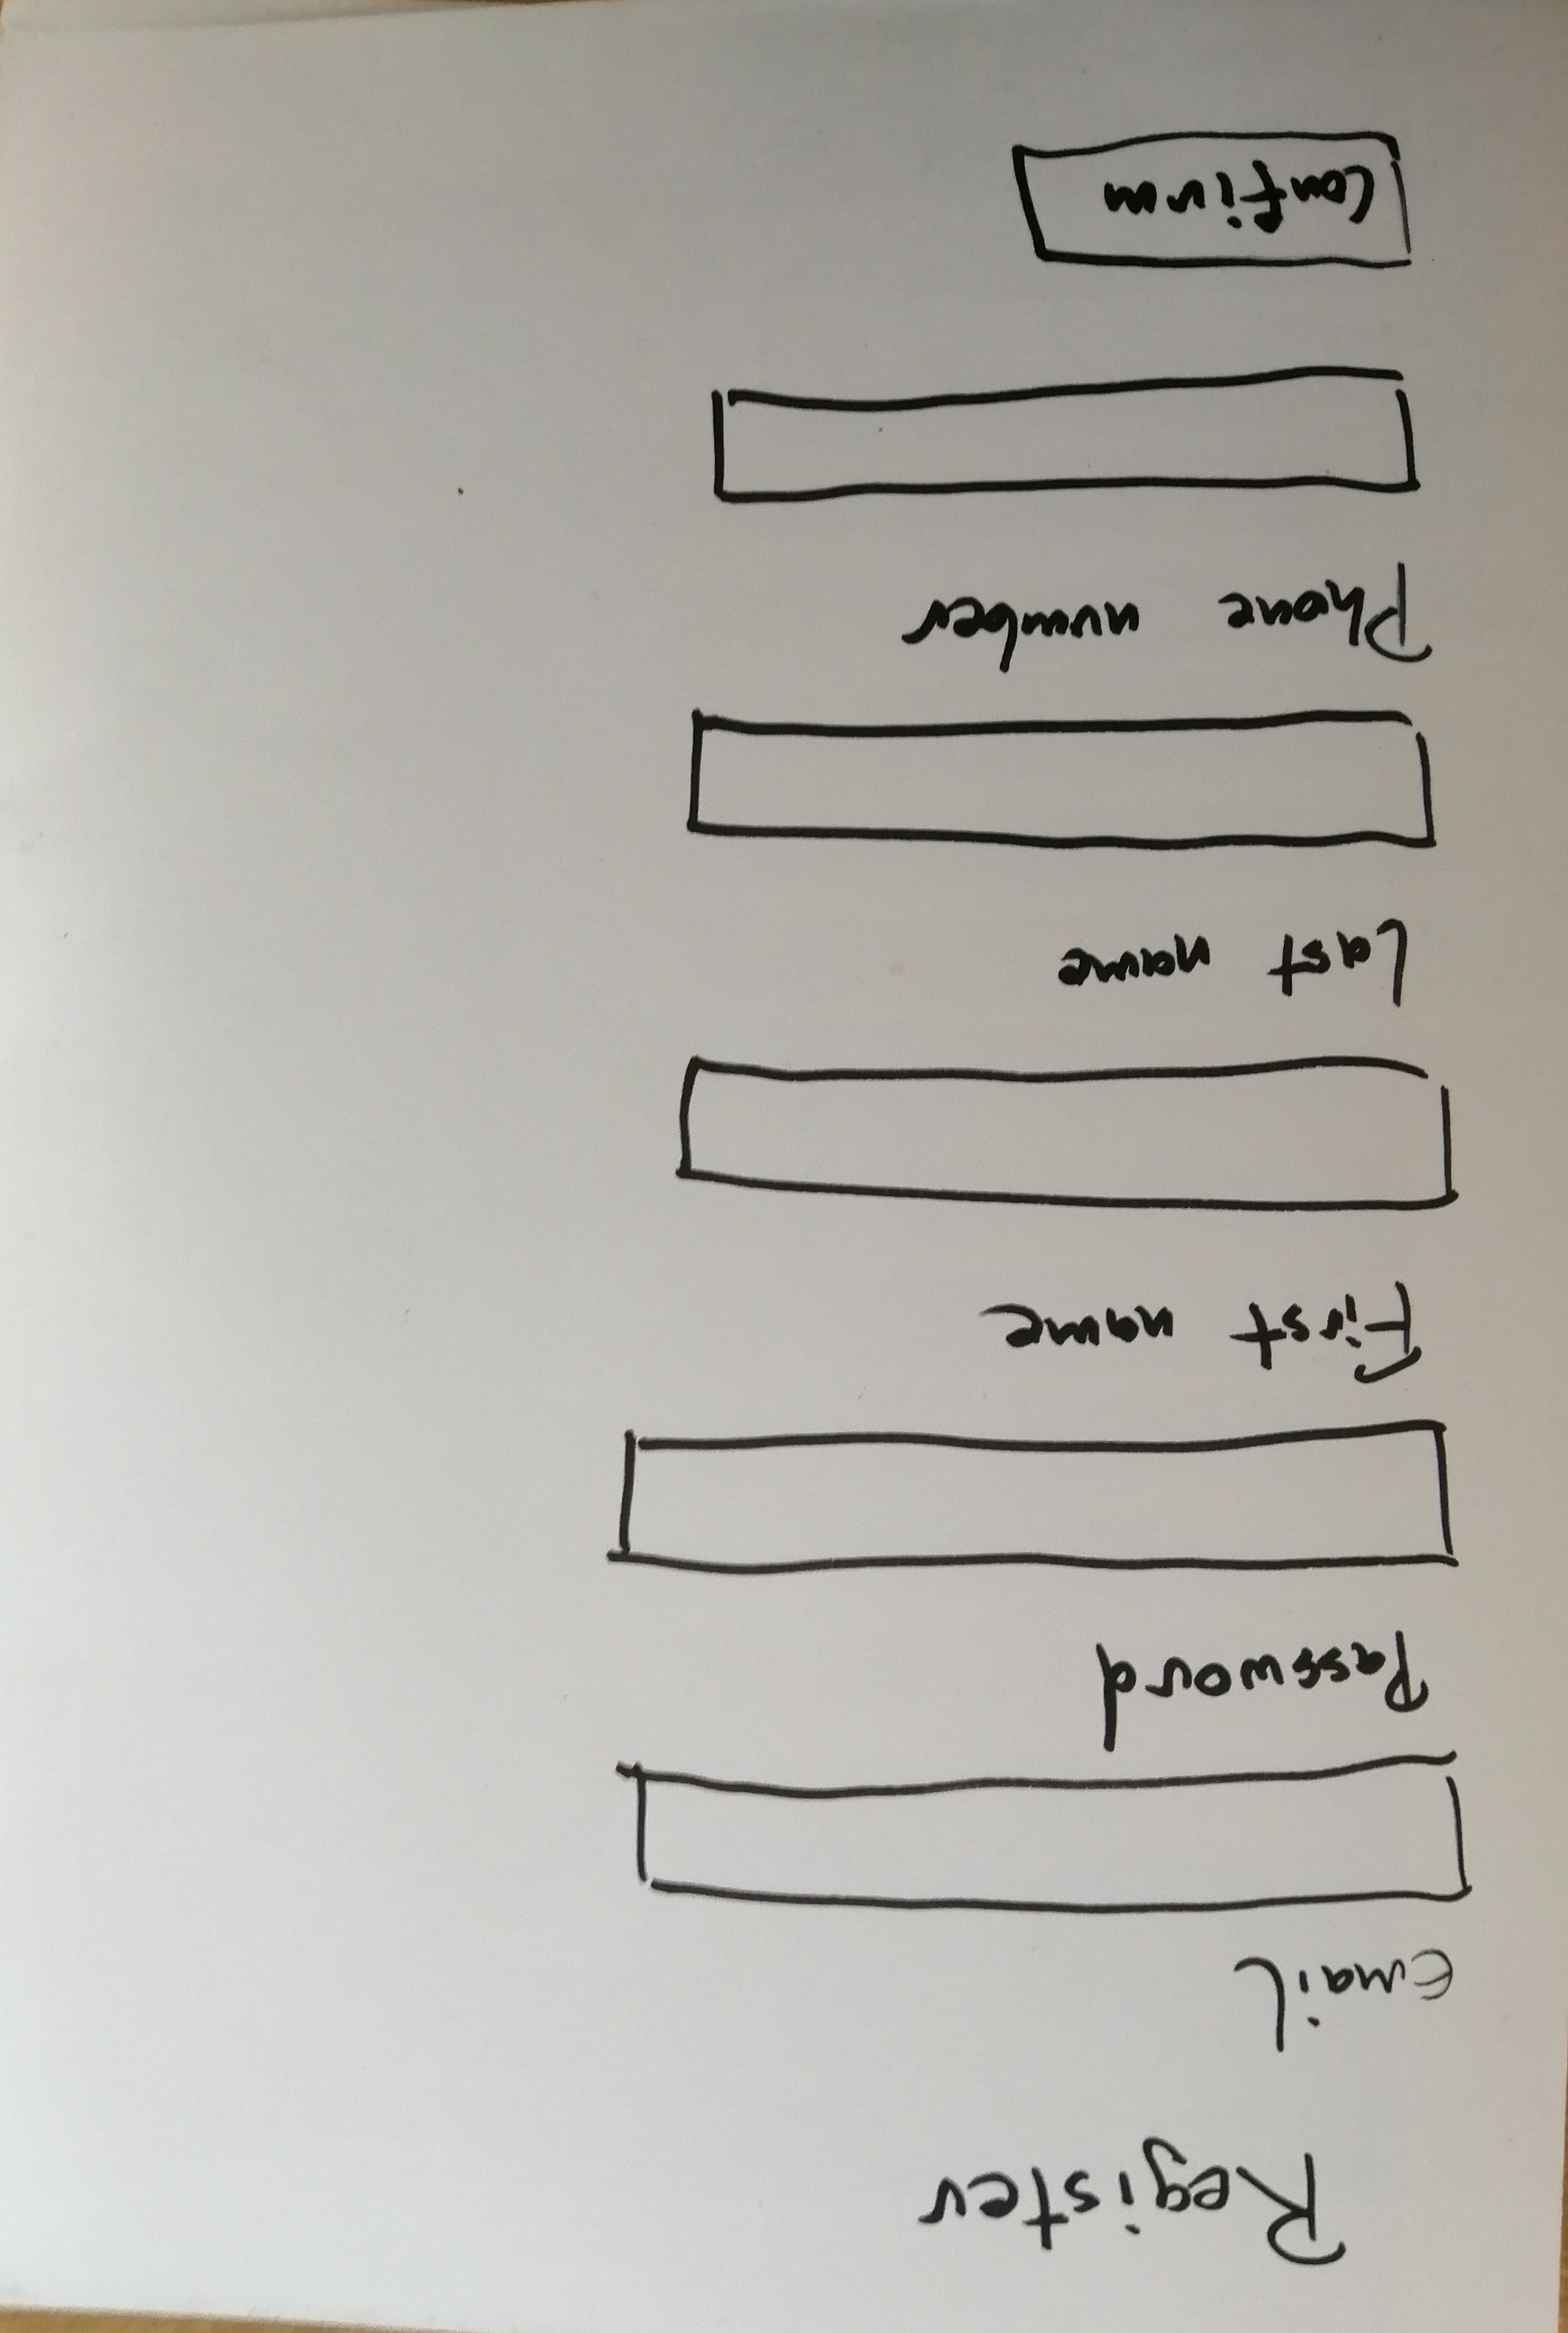 Register
Email
Password
First name
Last name
Phone number
Confirm